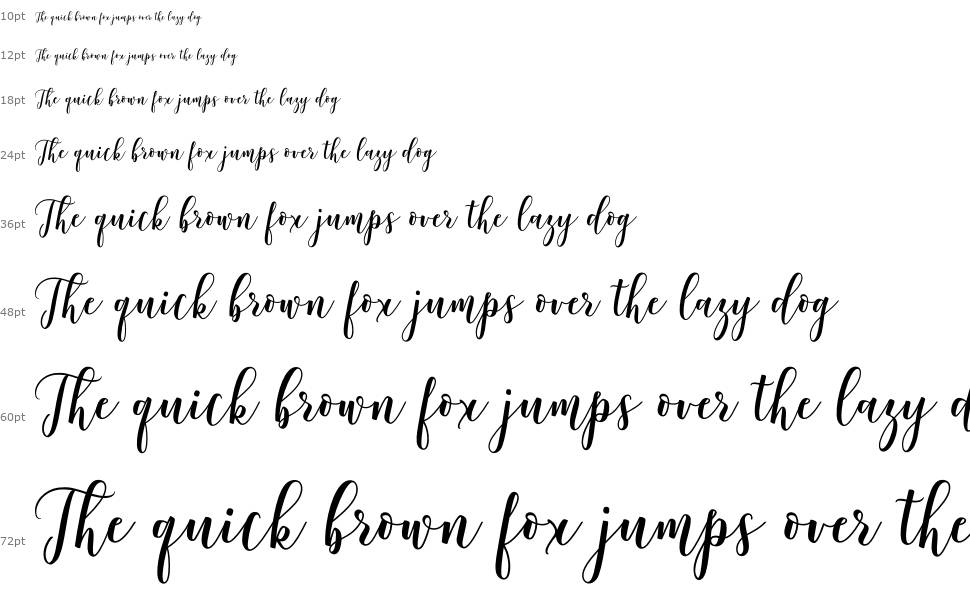 10pt The quick brown fox jumps over the lazy dog
12pt The quick brown fox jumps over the lazy dog
18pt The quick brown fox jumps over the lazy dog
24pt The quick brown fox jumps over the lazy dog
36pt The quick brown fox jumps over the lazy dog
48pt The quick brown fox jumps over the lazy dog
60pt The quick brown fox jumps over the lazy d
72pt The quick brown fox jumps over the